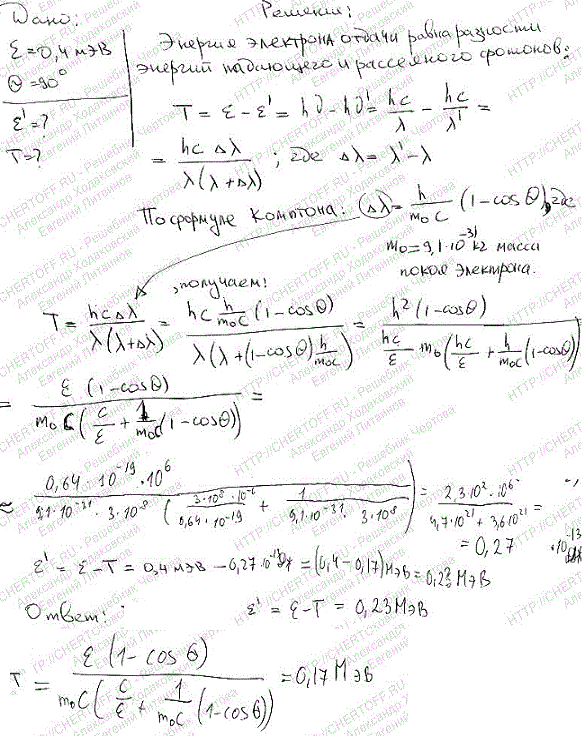 Дано:
ε = 0,4 мэВ
Θ = 90°
ε' = ?
T = ?
Решение:
Энергия электрона отдачи равна разности
энергий падающего и рассеяного фотонов:
T = ε - ε' = hν - hν' = hc/λ - hc/λ' =
= hcΔλ / λ(λ + Δλ) ; где Δλ = λ' - λ
По формуле Комптона: Δλ = h/m₀c (1 - cos Θ), где
m₀ = 9,1·10⁻³¹ кг масса
покоя электрона.
, получаем:
T = hcΔλ / λ(λ+Δλ) = hc h/m₀c (1-cosΘ) / λ(λ + (1-cosΘ) h/m₀c) = h² (1-cosΘ) / hc/ε m₀ (hc/ε + h/m₀c (1-cosΘ)) =
= ε (1-cosΘ) / m₀c (c/ε + 1/m₀c (1-cosΘ)) =
≈ 0,64·10⁻¹⁹·10⁶ / 9,1·10⁻³¹·3·10⁸ (3·10⁸·10⁻⁶ / 0,64·10⁻¹⁹ + 1 / 9,1·10⁻³¹·3·10⁸) = 2,3·10²·10⁶ / 4,7·10²¹ + 3,6·10²¹ =
= 0,27 ·10⁻¹³ Дж
ε' = ε - T = 0,4 мэВ - 0,27·10⁻¹³ Дж = (0,4 - 0,17) МэВ = 0,23 МэВ
Ответ:
ε' = ε - T = 0,23 МэВ
T = ε (1 - cos Θ) / m₀c (c/ε + 1/m₀c (1-cosΘ)) = 0,17 МэВ
HTTP://CHERTOFF.RU - Решебник Чертова
Александр Ходаковский
Евгений Литвинов